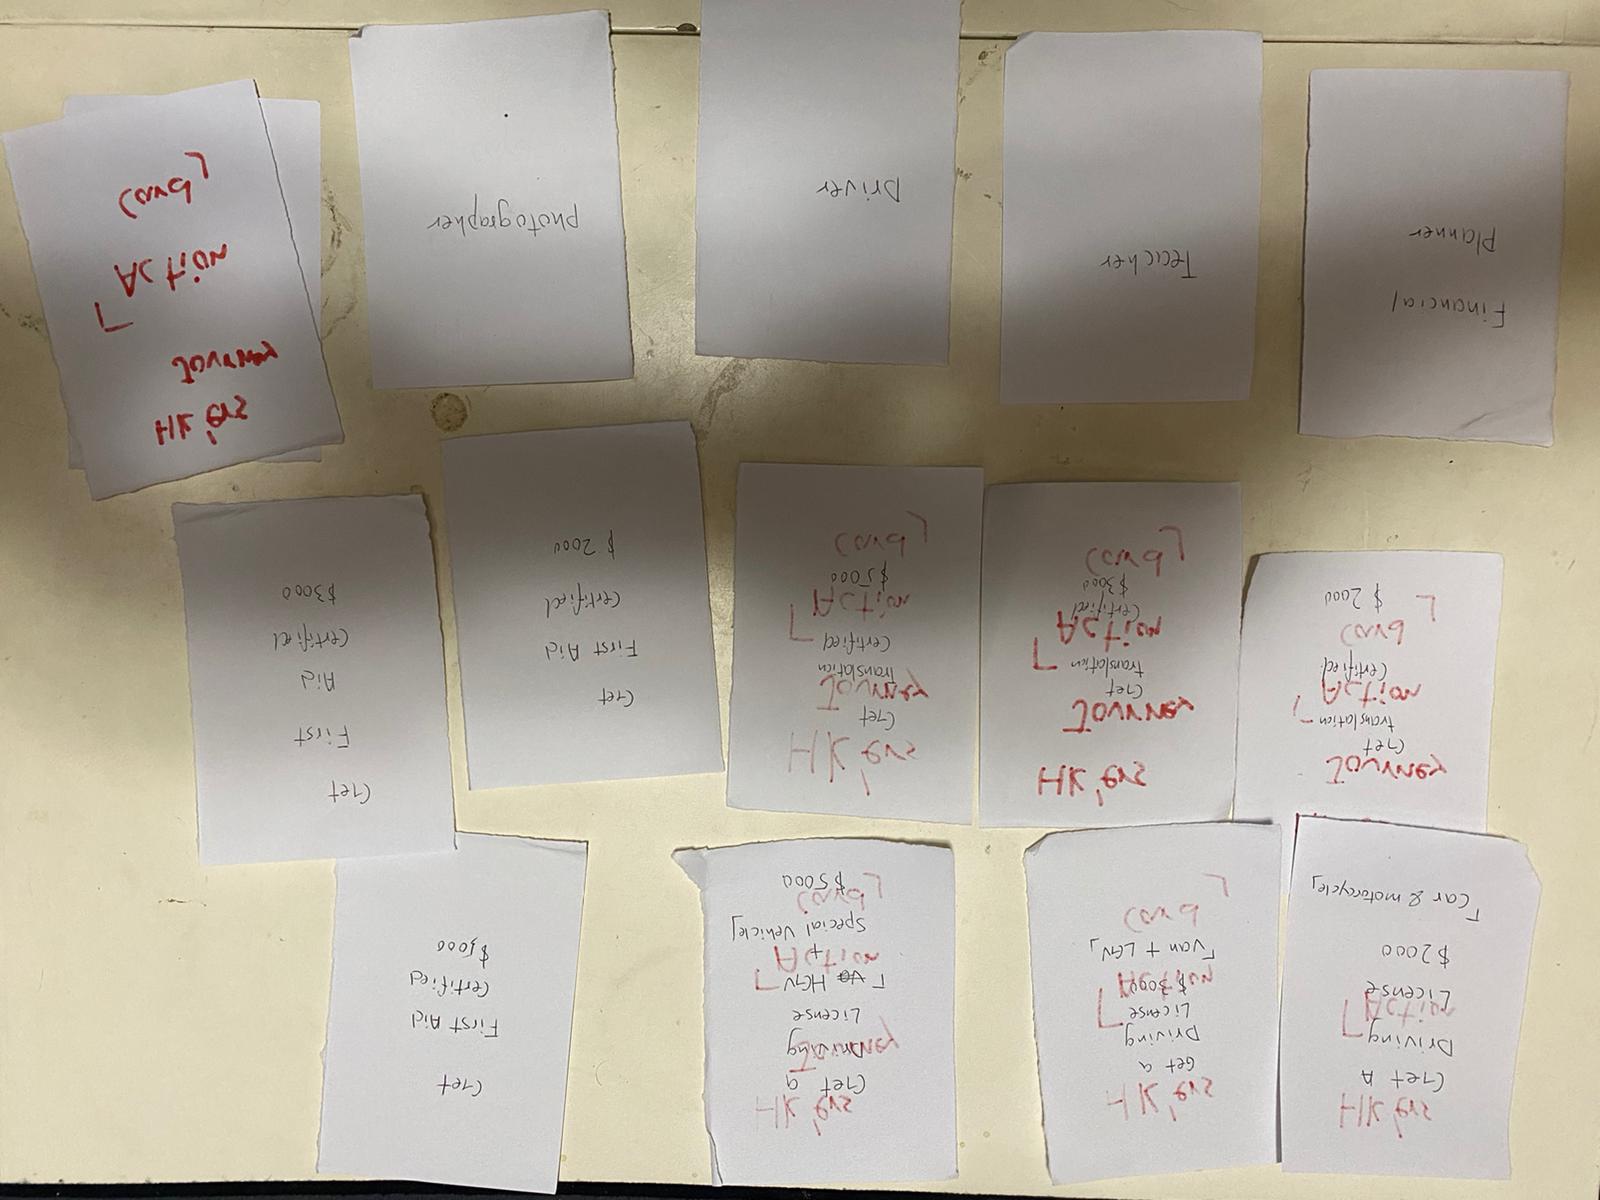 HK'ers
Get A
Driving
「Action
License
$2000
「Car & motorcycle」
HK'ers
Get a
Driving
License
「Action
$3000
「Van + LGV」
Card」
HK'ers
Get a
Journey
Driving
License
「HGV
Action
+
Special Vehicle」
Card」
$5000
Get
First Aid
Certified
$5000
Journey
Get
translation
「Action
Certified
Card」
$2000
HK'ers
Journey
Get
translation
「Action
Certified
$3000
Card」
HK'ers
Get
Journey
translation
Certified
「Action
$5000
Card」
Get
First Aid
Certified
$2000
Get
First
Aid
Certified
$3000
Financial
Planner
Teacher
Driver
photographer
HK'ers
Journey
「Action
Card」